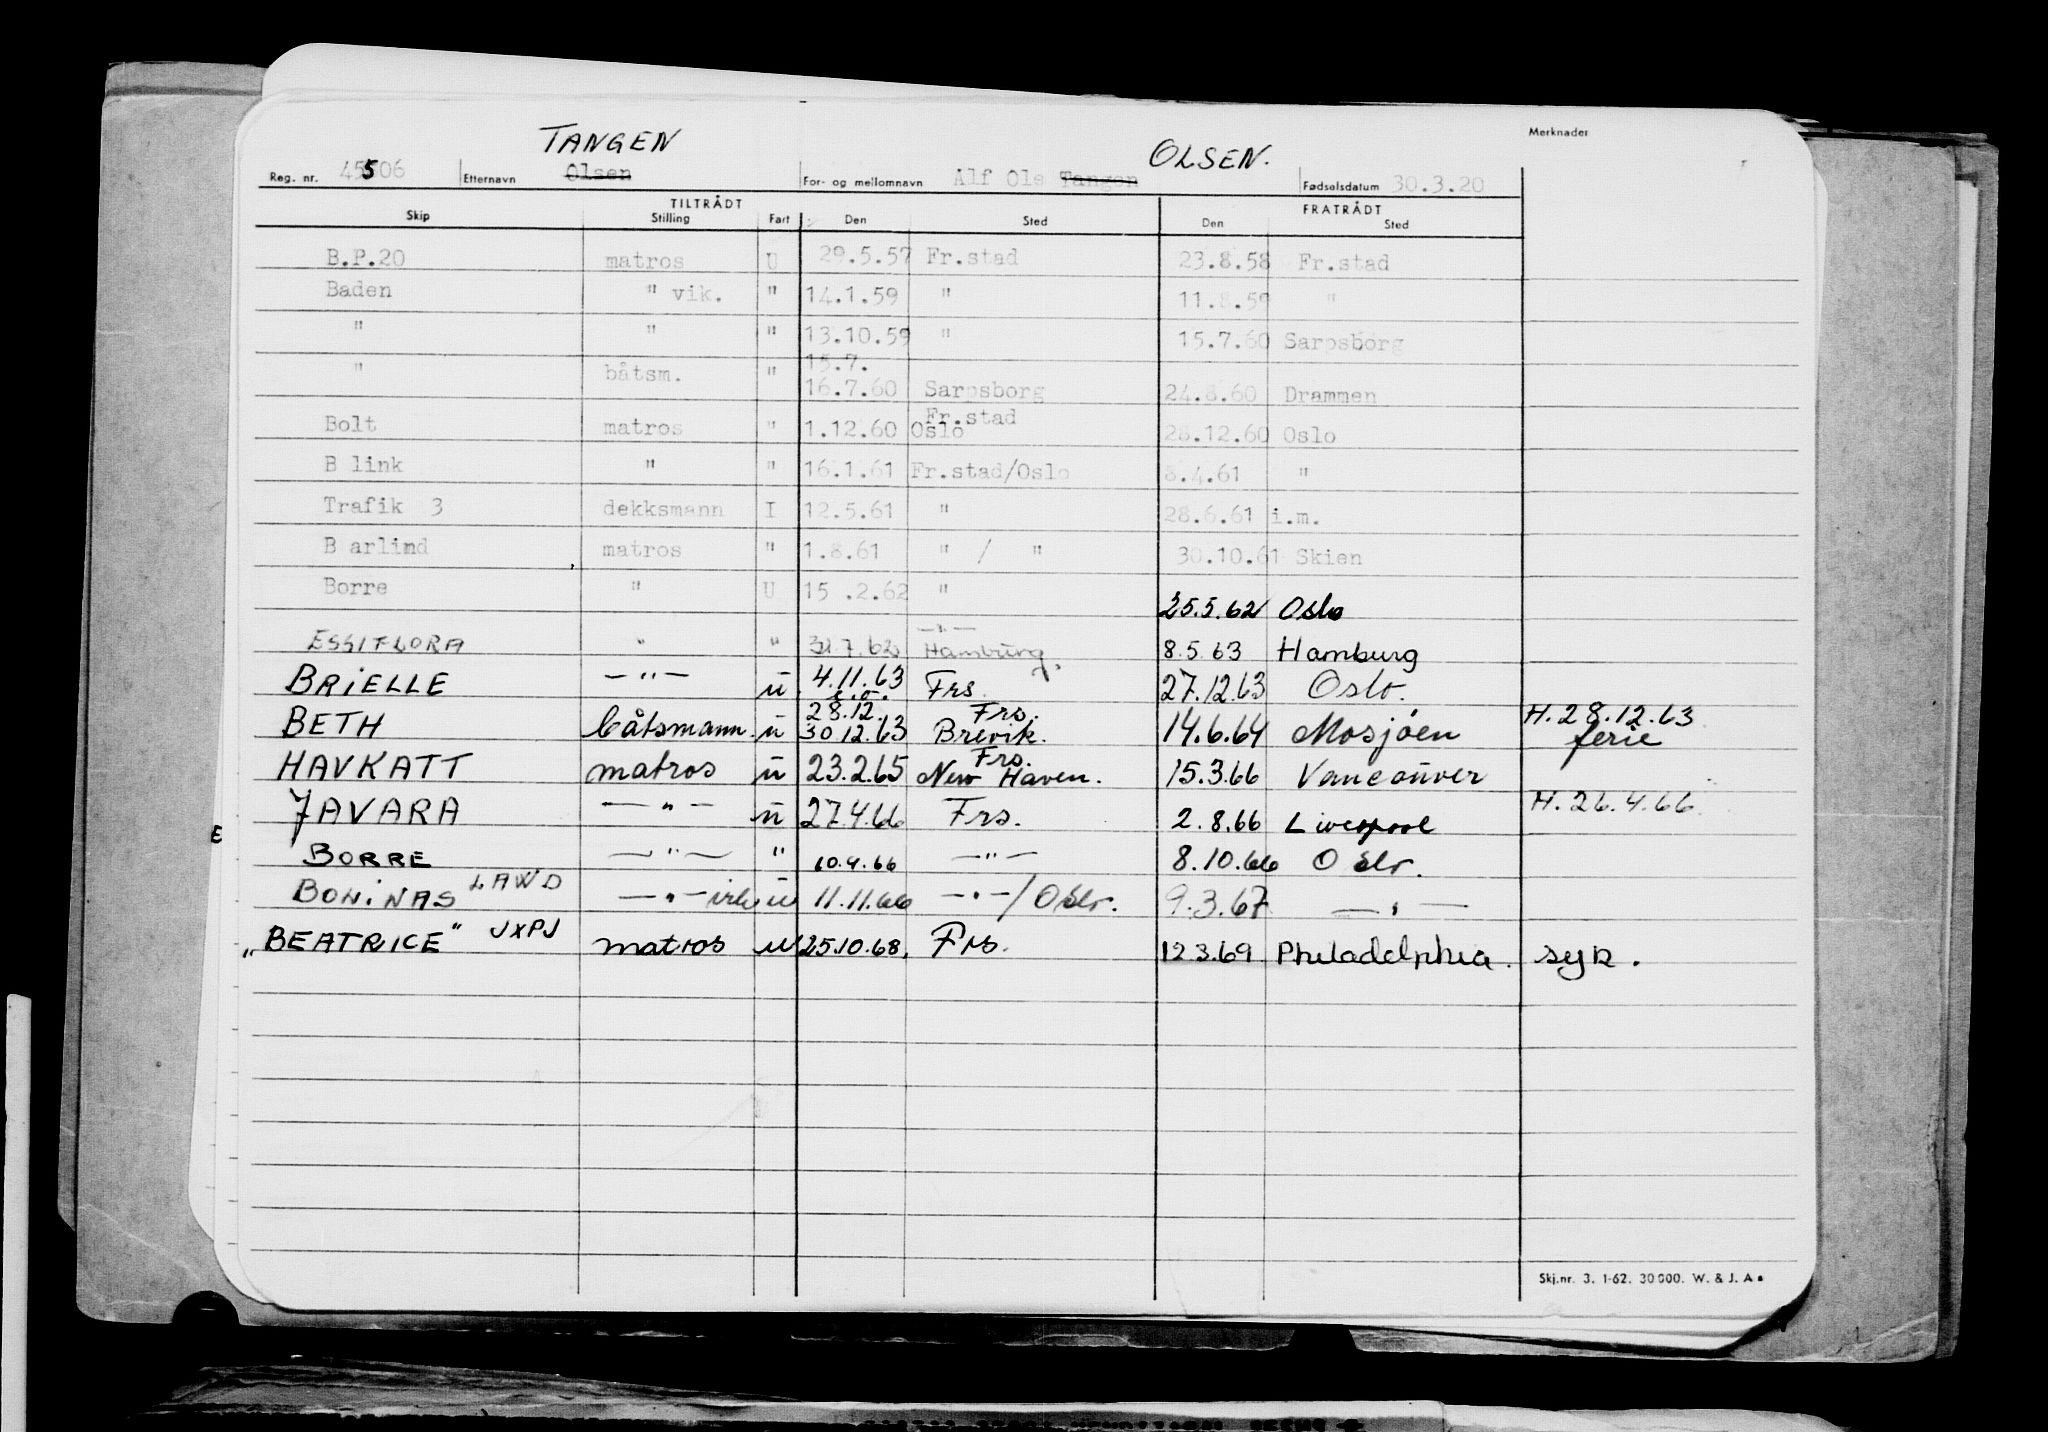 TANGEN OLSEN. Merknader
Reg. nr. 45506 Etternavn Olsen For- og mellomnavn Alf Ole Tangen Fødselsdatum 30.3.20
TILTRÅDT FRATRÅDT
Skip Stilling Fart Den Sted Den Sted
B.P.20 matros U 29.5.57 Fr.stad 23.8.58 Fr.stad
Baden " vik. " 14.1.59 " 11.8.59 "
" " " 13.10.59 " 15.7.60 Sarpsborg
15.7.
" båtsm. " 16.7.60 Sarpsborg 24.8.60 Drammen
Fr.stad
Bolt matros " 1.12.60 Oslo 28.12.60 Oslo
B link " " 16.1.61 Fr.stad/Oslo 8.4.61 "
Trafik 3 dekksmann I 12.5.61 " 28.6.61 i.m.
B arlind matros " 1.8.61 " / " 30.10.61 Skien
Borre " U 15 .2.62 " 25.5.62 Oslo
— " —
ESSIFLORA " " 31.7.62 Hamburg 8.5.63 Hamburg
BRIELLE — " — u 4.11.63 Frs. 27.12.63 Oslo.
28.12. Frs. H. 28.12.63
BETH båtsmann u 30.12.63 Brevik. 14.6.64 Mosjøen ferie
Frs.
HAVKATT matros u 23.2.65 New Haven. 15.3.66 Vancouver
JAVARA — " — u 27.4.66 Frs. 2.8.66 Liverpool H. 26.4.66
E
BORRE — " — " 10.9.66 — " — 8.10.66 Oslo.
BONINAS LAWD — " — u 11.11.66 — " — / Oslo. 9.3.67 — " —
"BEATRICE" JXPJ matros u 25.10.68. Frs. 12.3.69 Philadelphia. syk.
Skj.nr. 3. 1-62. 30 000. W. & J. A.